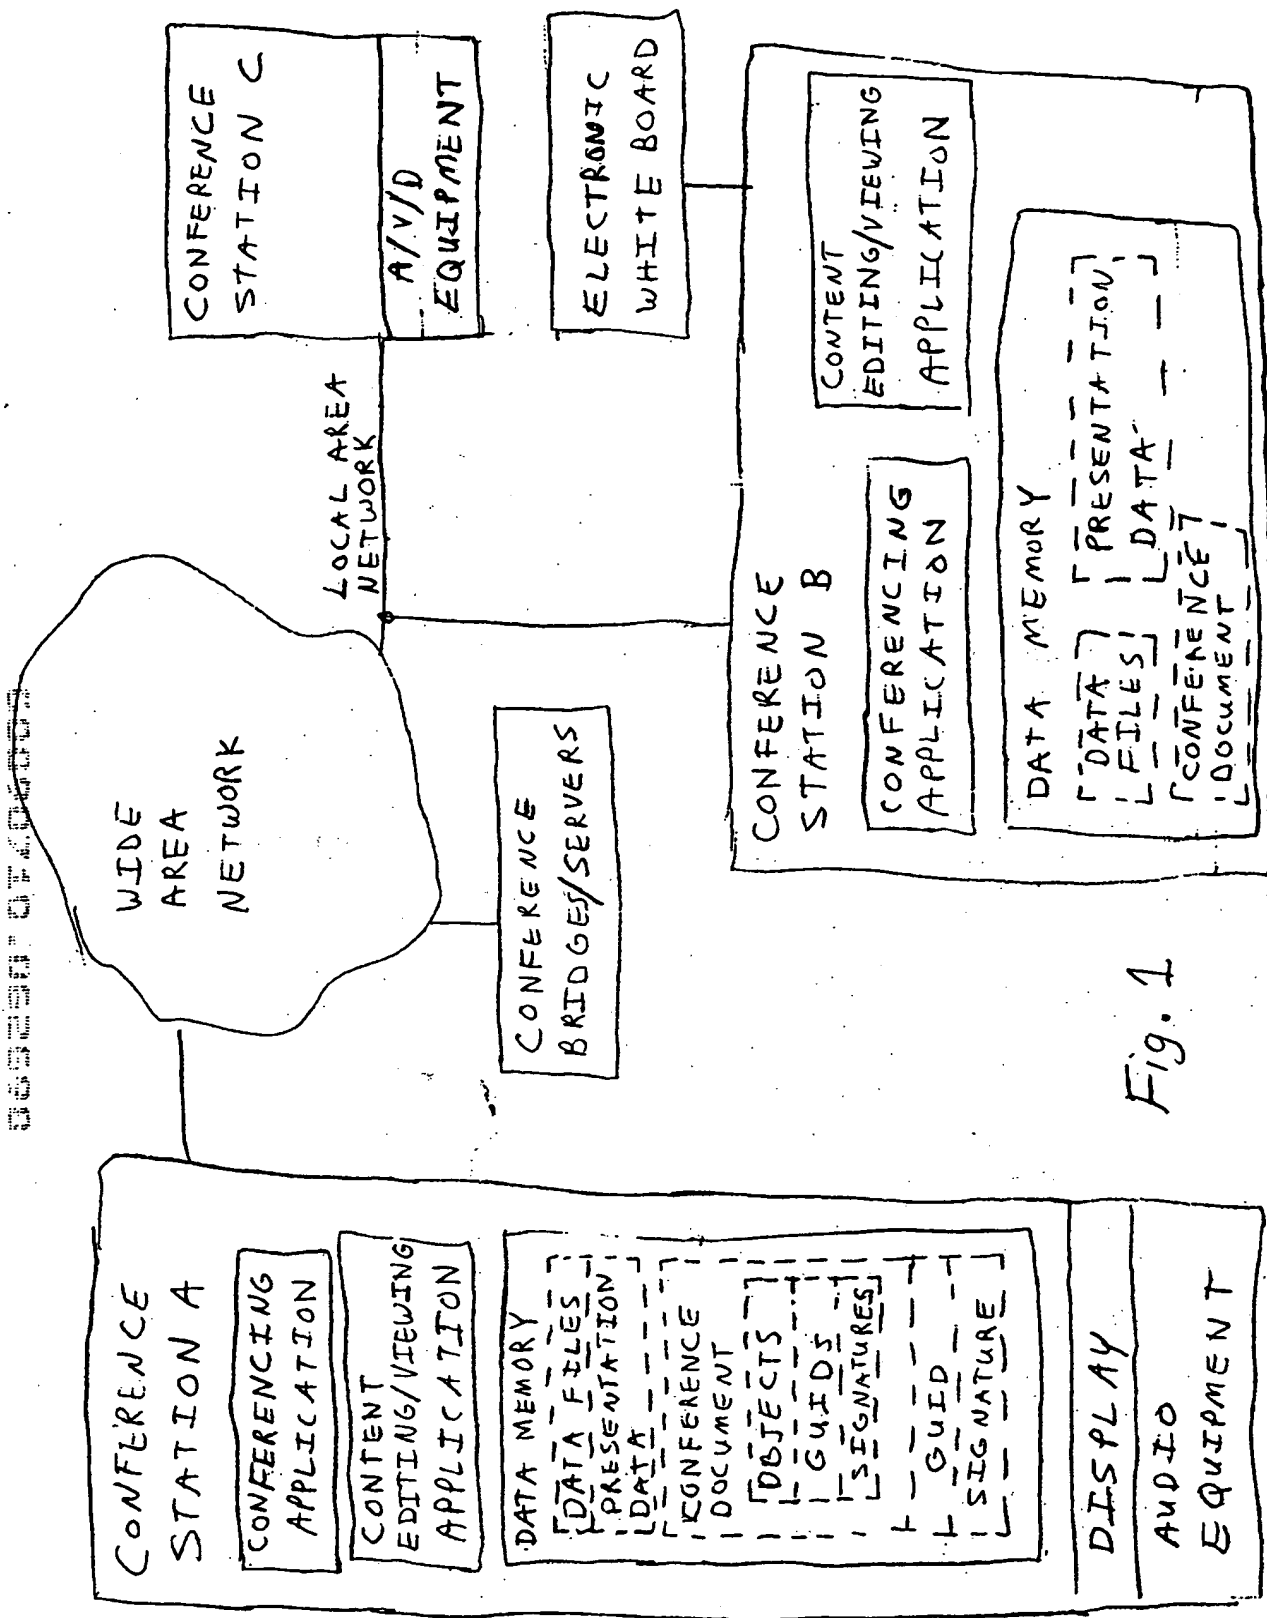 CONFERENCE
STATION A
CONFERENCING
APPLICATION
CONTENT
EDITING/VIEWING
APPLICATION
DATA MEMORY
DATA FILES
PRESENTATION
DATA
CONFERENCE
DOCUMENT
OBJECTS
GUIDS
SIGNATURES
GUID
SIGNATURE
DISPLAY
AUDIO
EQUIPMENT
WIDE
AREA
NETWORK
CONFERENCE
BRIDGES/SERVERS
LOCAL AREA
NETWORK
CONFERENCE
STATION C
A/V/D
EQUIPMENT
ELECTRONIC
WHITE BOARD
CONFERENCE
STATION B
CONFERENCING
APPLICATION
CONTENT
EDITING/VIEWING
APPLICATION
DATA MEMORY
DATA
FILES
PRESENTATION
DATA
CONFERENCE
DOCUMENT
Fig. 1